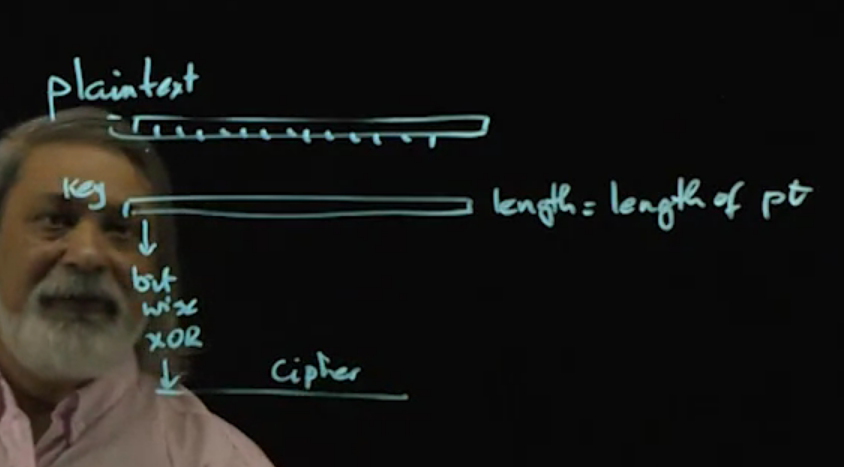 plaintext
key
length = length of pt
bit
wise
XOR
cipher